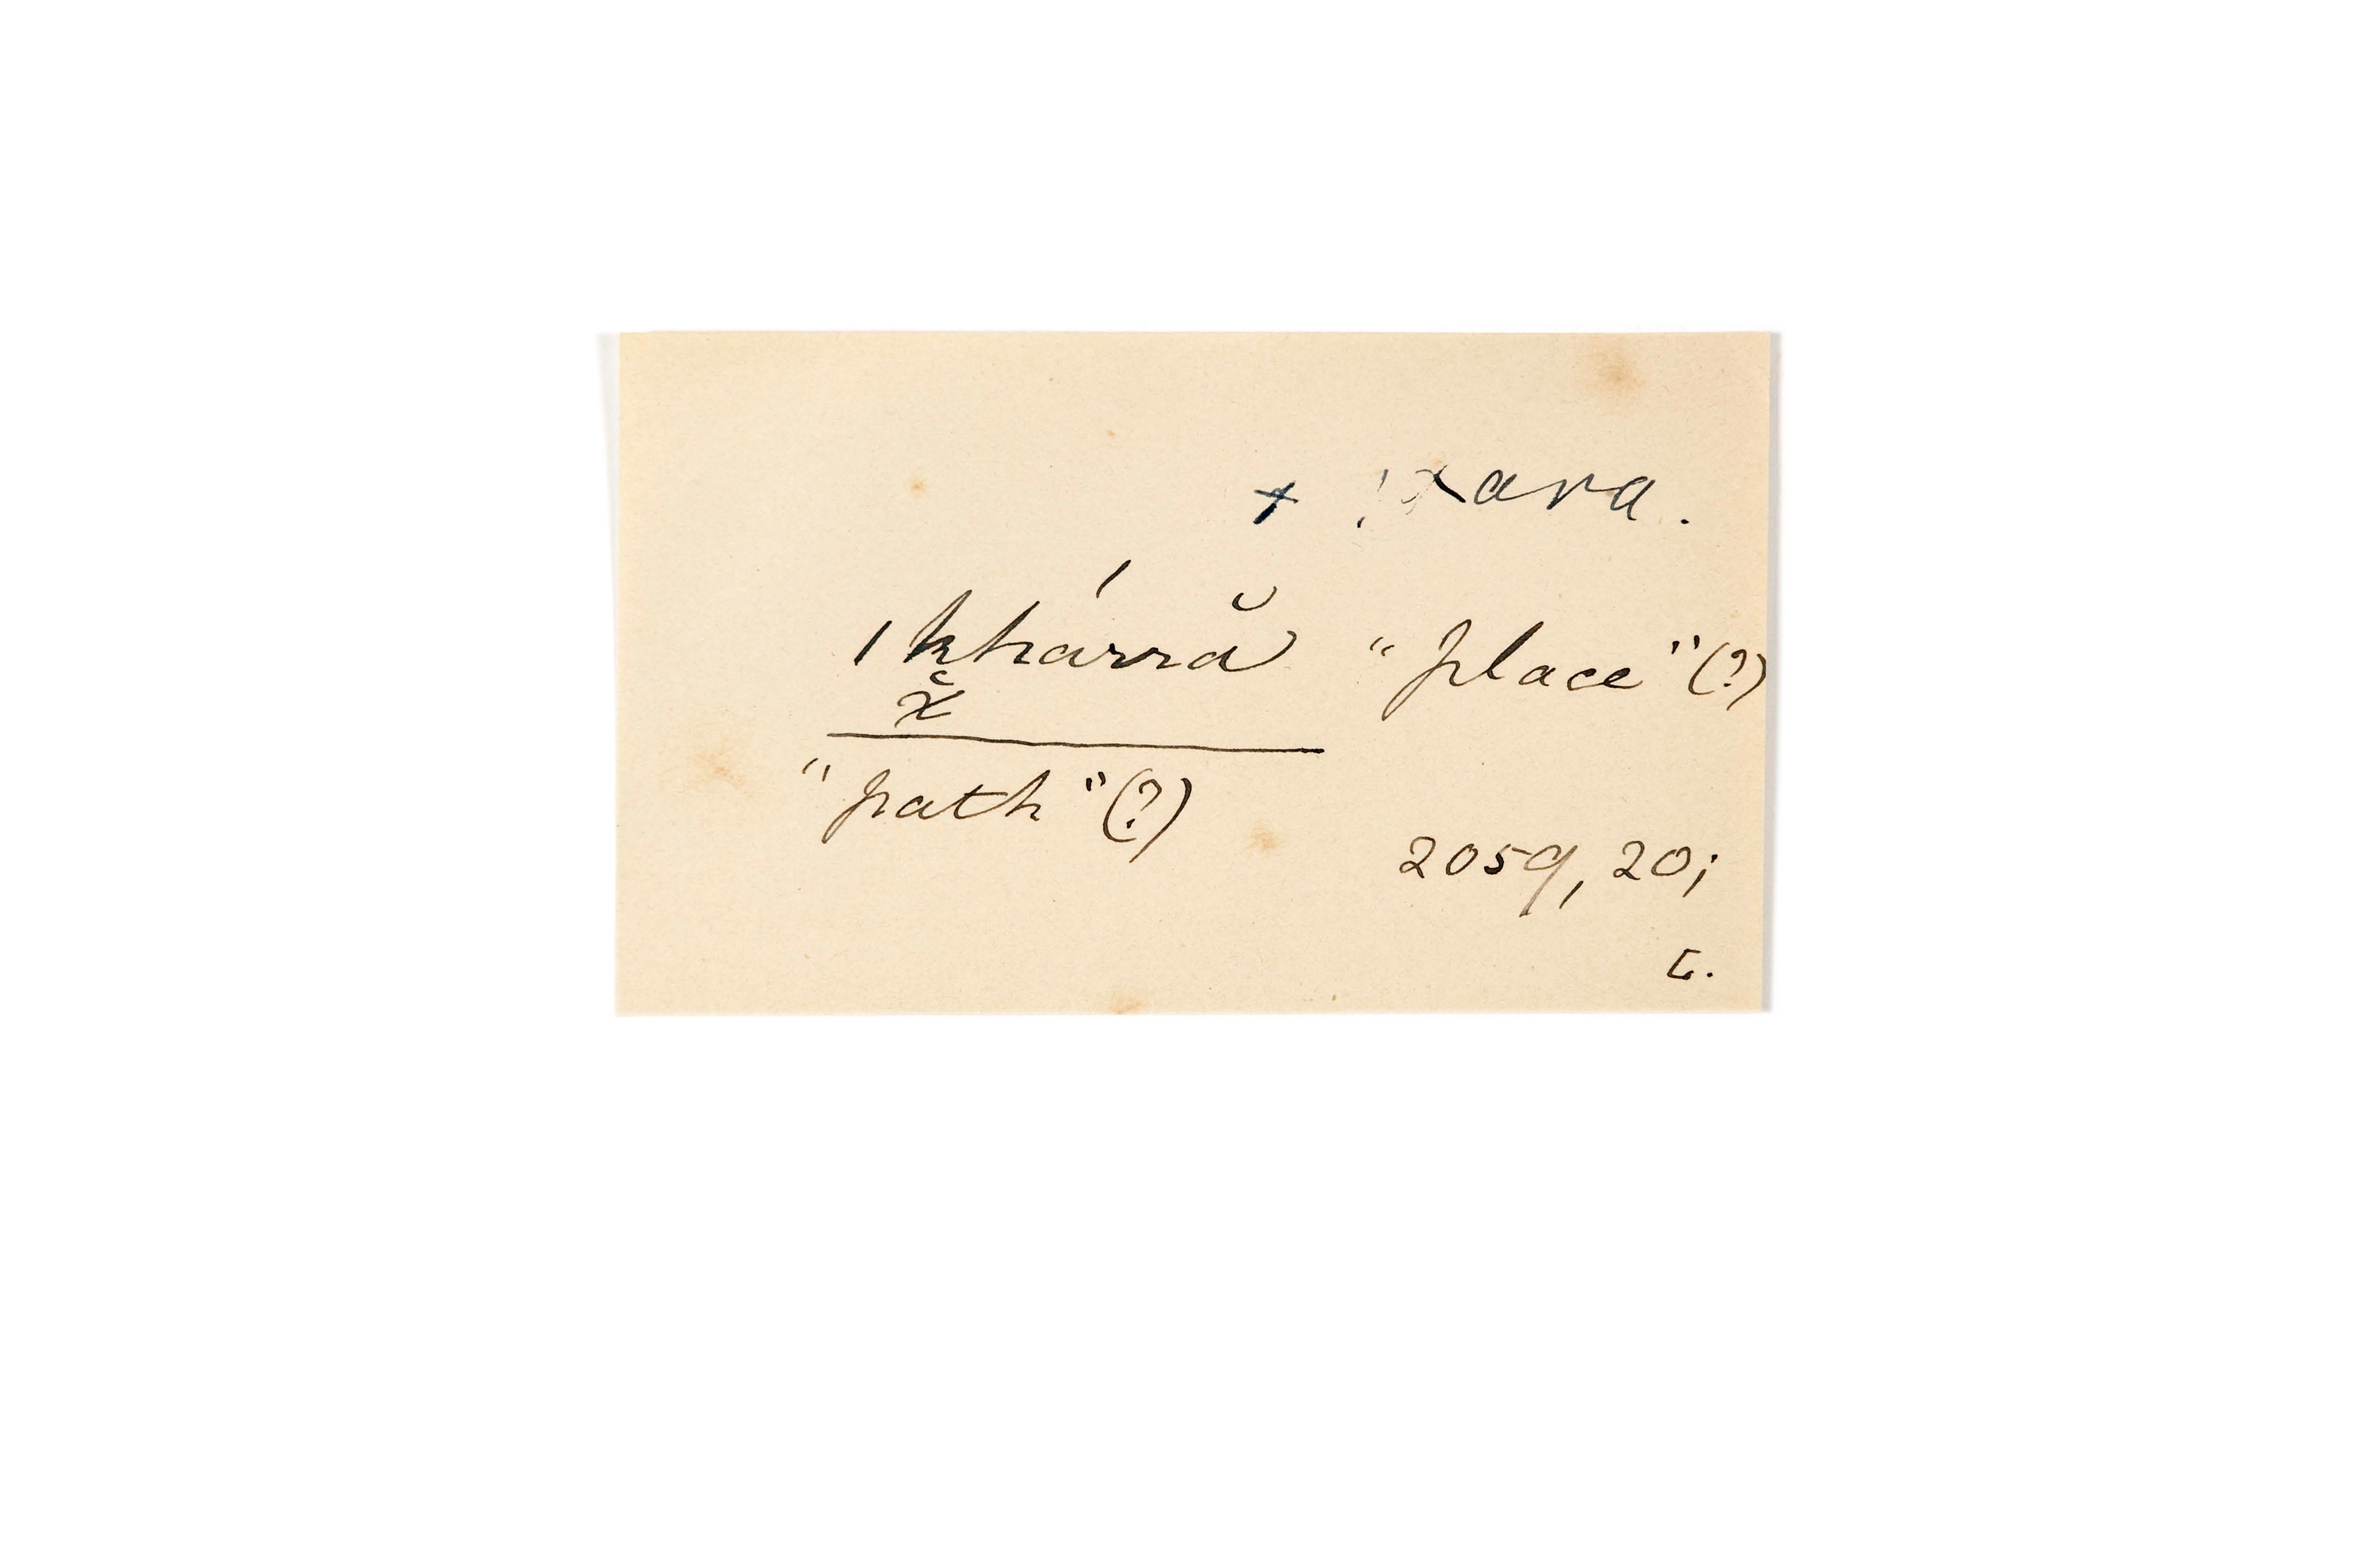 + !χara.
ǀkhárră "place"(?)
χ̆
"path"(?)
2059, 20;
L.